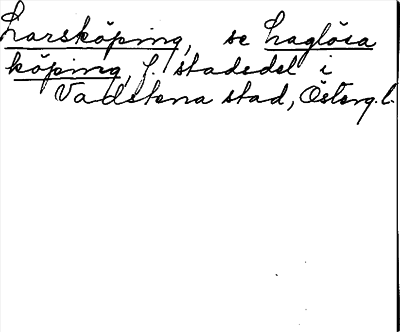 Larsköping, se Laglösa
köping, f. stadsdel i
Vadstena stad, Österg. l.